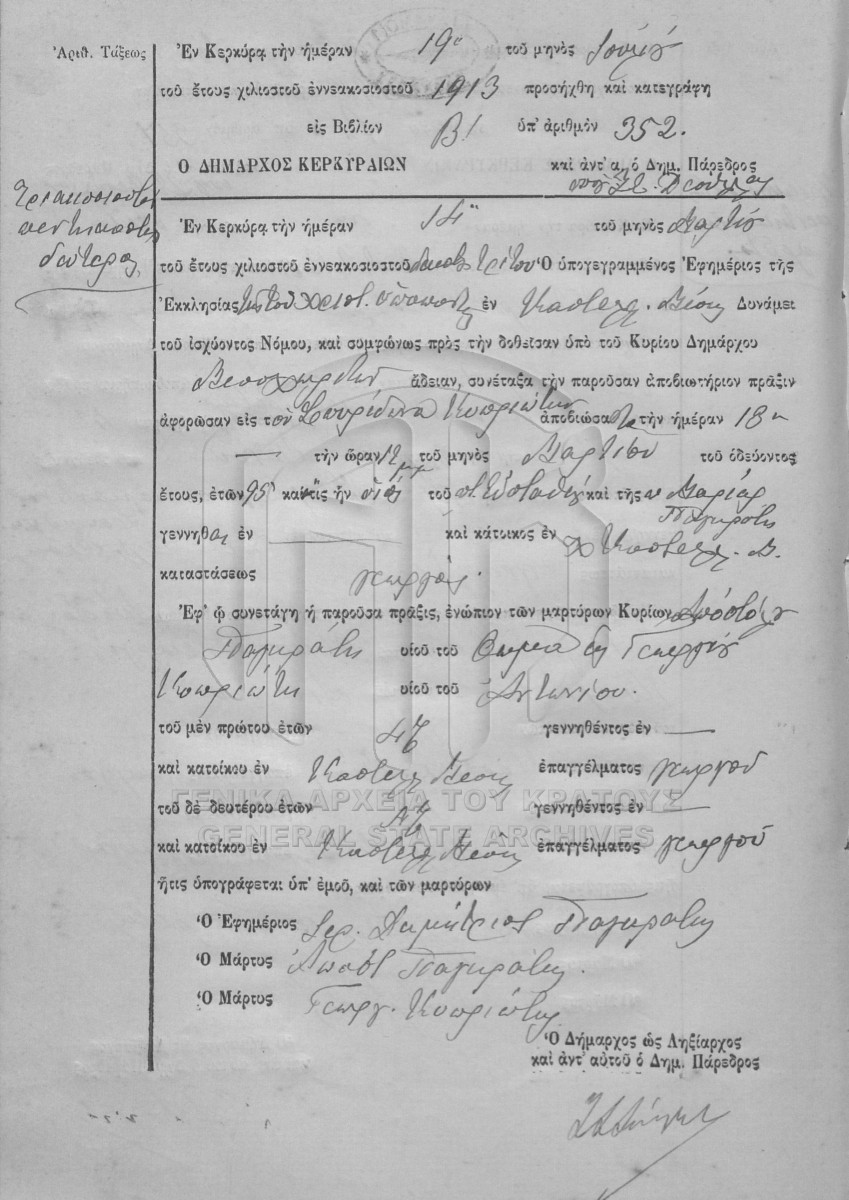 Ἀριθ. Τάξεως
Ἐν Κερκύρᾳ τὴν ἡμέραν 19 τοῦ μηνὸς
τοῦ ἔτους χιλιοστοῦ ἐννεακοσιοστοῦ 1913 προσήχθη καὶ κατεγράφη
εἰς Βιβλίον Β' ὑπ' ἀριθμὸν 352.
Ὁ ΔΗΜΑΡΧΟΣ ΚΕΡΚΥΡΑΙΩΝ
καὶ ἀντ' α. ὁ Δημ. Πάρεδρος
Ἐν Κερκύρᾳ τὴν ἡμέραν 14 τοῦ μηνὸς
τοῦ ἔτους χιλιοστοῦ ἐννεακοσιοστοῦ Τρίτου Ὁ ὑπογεγραμμένος Ἐφημέριος τῆς
Ἐκκλησίας ἐν Καστελλ. Μέση Δυνάμει
τοῦ ἰσχύοντος Νόμου, καὶ συμφώνως πρὸς τὴν δοθεῖσαν ὑπὸ τοῦ Κυρίου Δημάρχου
ἄδειαν, συνέταξα τὴν παροῦσαν ἀποβιωτήριον πρᾶξιν
ἀφορῶσαν εἰς τὸν Σπυρίδωνα Κυπριώτην ἀποβιώσα τὴν ἡμέραν
τὴν ὥραν τοῦ μηνὸς Μαρτίου τοῦ ὁδεύοντος
ἔτους, ἐτῶν 95 καὶ ἦν υἱὸς τοῦ π. Εὐσταθίου καὶ τῆς Μαρίας
Παγκράτη
γεννηθ ἐν — καὶ κάτοικος ἐν Καστελλ. Μ.
καταστάσεως γεωργός.
Ἐφ' ᾧ συνετάγη ἡ παροῦσα πρᾶξις, ἐνώπιον τῶν μαρτύρων Κυρίων Ἀποστόλου
Παγκράτη υἱοῦ τοῦ Θωμᾶ Γεωργίου
Κυπριώτη υἱοῦ τοῦ Ἀντωνίου.
τοῦ μὲν πρώτου ἐτῶν γεννηθέντος ἐν —
καὶ κατοίκου ἐν Καστελλ Μέση ἐπαγγέλματος γεωργοῦ
τοῦ δὲ δευτέρου ἐτῶν γεννηθέντος ἐν —
καὶ κατοίκου ἐν Καστελλ Μέση ἐπαγγέλματος γεωργοῦ
ἥτις ὑπογράφεται ὑπ' ἐμοῦ, καὶ τῶν μαρτύρων
Ὁ Ἐφημέριος Ἱερ. Δημήτριος Παγκράτης
Ὁ Μάρτυς Ἀποστ Παγκράτης.
Ὁ Μάρτυς Γεωργ. Κυπριώτης
Ὁ Δήμαρχος ὡς Ληξίαρχος
καὶ ἀντ' αὐτοῦ ὁ Δημ. Πάρεδρος
τριακοσιοστὴ
πεντηκοστὴ
δευτέρα
ΓΕΝΙΚΑ ΑΡΧΕΙΑ ΤΟΥ ΚΡΑΤΟΥΣ
GENERAL STATE ARCHIVES